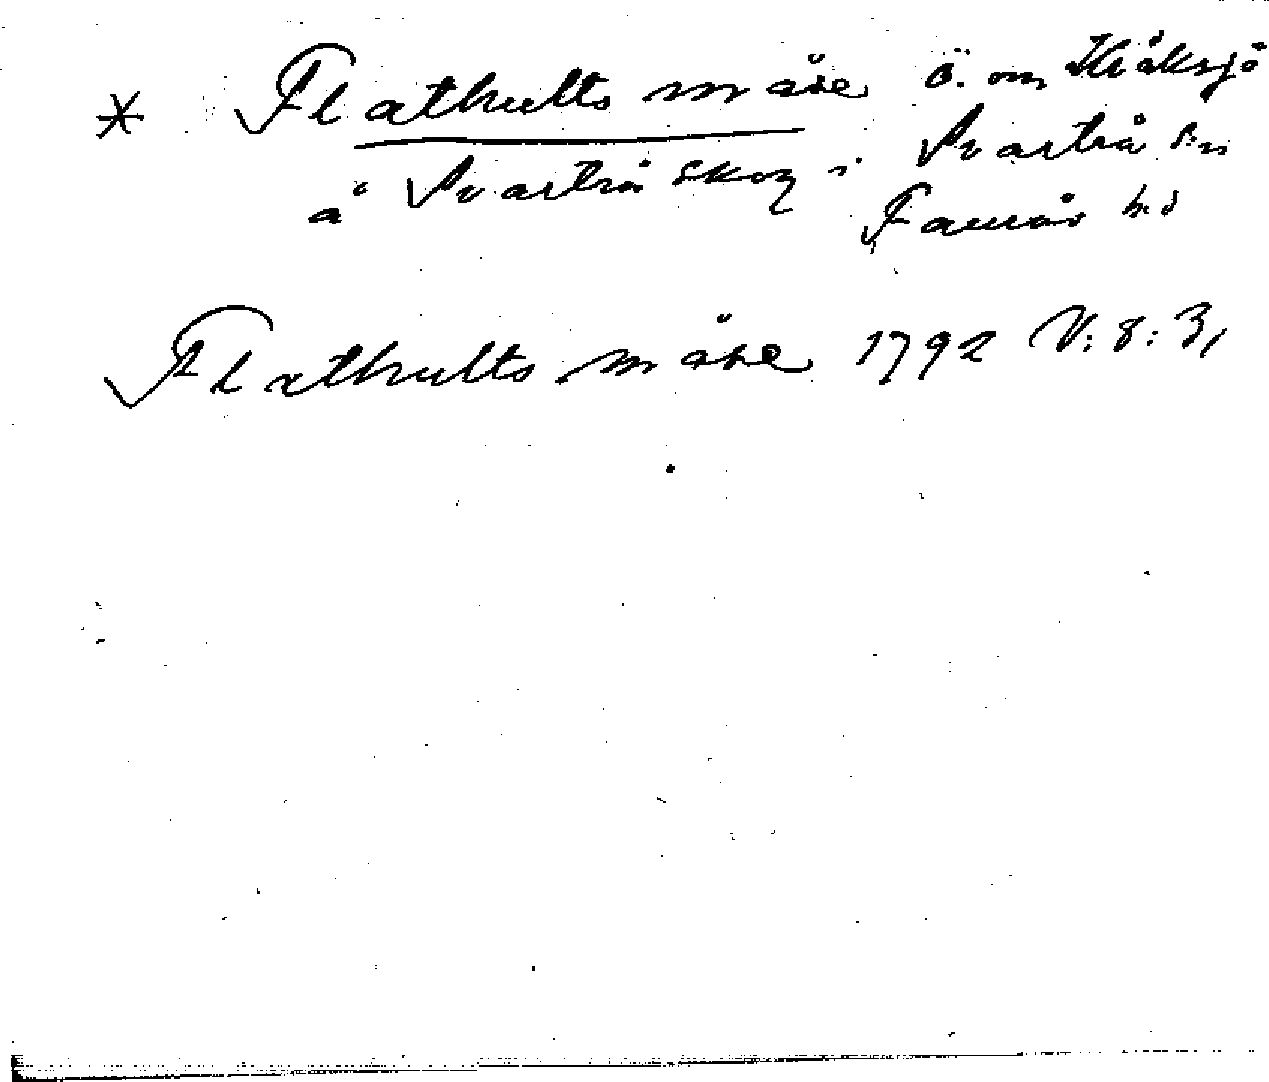 * Flathults måse ö. om Kråksjö
å Svartrå skog i Svartrå s:n
Faurås hd
Flathults måse 1792 V:8:3,